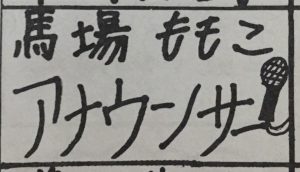 馬場 ももこ
アナウンサー